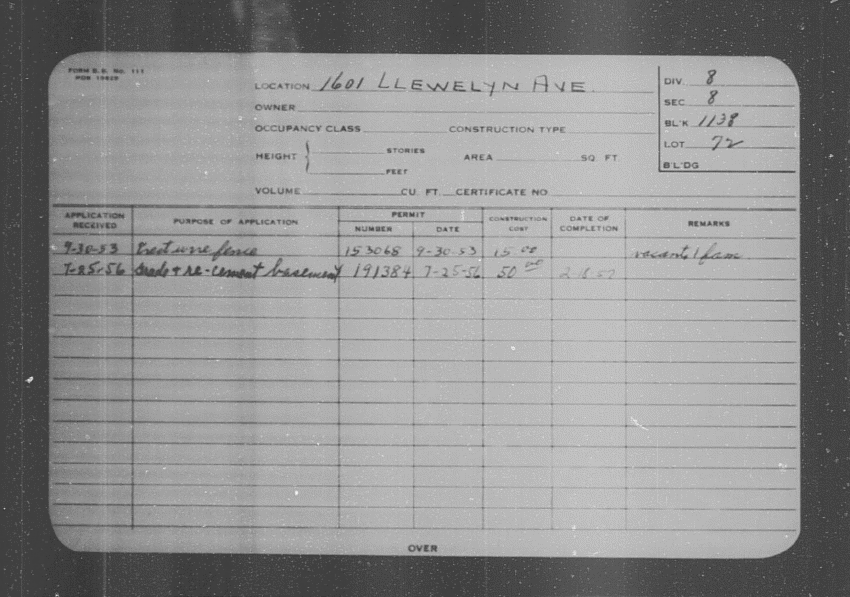 FORM B.B. No. 111
LOCATION 1601 LLEWELYN AVE.
OWNER
OCCUPANCY CLASS CONSTRUCTION TYPE
HEIGHT STORIES AREA SQ. FT.
FEET
VOLUME CU. FT. CERTIFICATE NO.
DIV. 8
SEC 8
BL'K 1138
LOT 72
B'L'DG
APPLICATION RECEIVED PURPOSE OF APPLICATION PERMIT NUMBER DATE CONSTRUCTION COST DATE OF COMPLETION REMARKS
9-30-53 Erect wire fence 153068 9-30-53 15.00 vacant 1 fam.
7-25-56 Grade & re-cement basement 191384 7-25-56 50.00
OVER